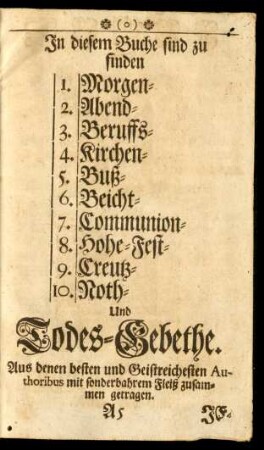 (o)
In diesem Buche sind zu
finden
1. Morgen-
2. Abend-
3. Beruffs-
4. Kirchen-
5. Buß-
6. Beicht-
7. Communion-
8. Hohe-Fest-
9. Creutz-
10. Noth-
Und
Todes-Gebethe.
Aus denen besten und Geistreichesten Au-
thoribus mit sonderbahrem Fleiß zusam-
men getragen.
A5 JE-